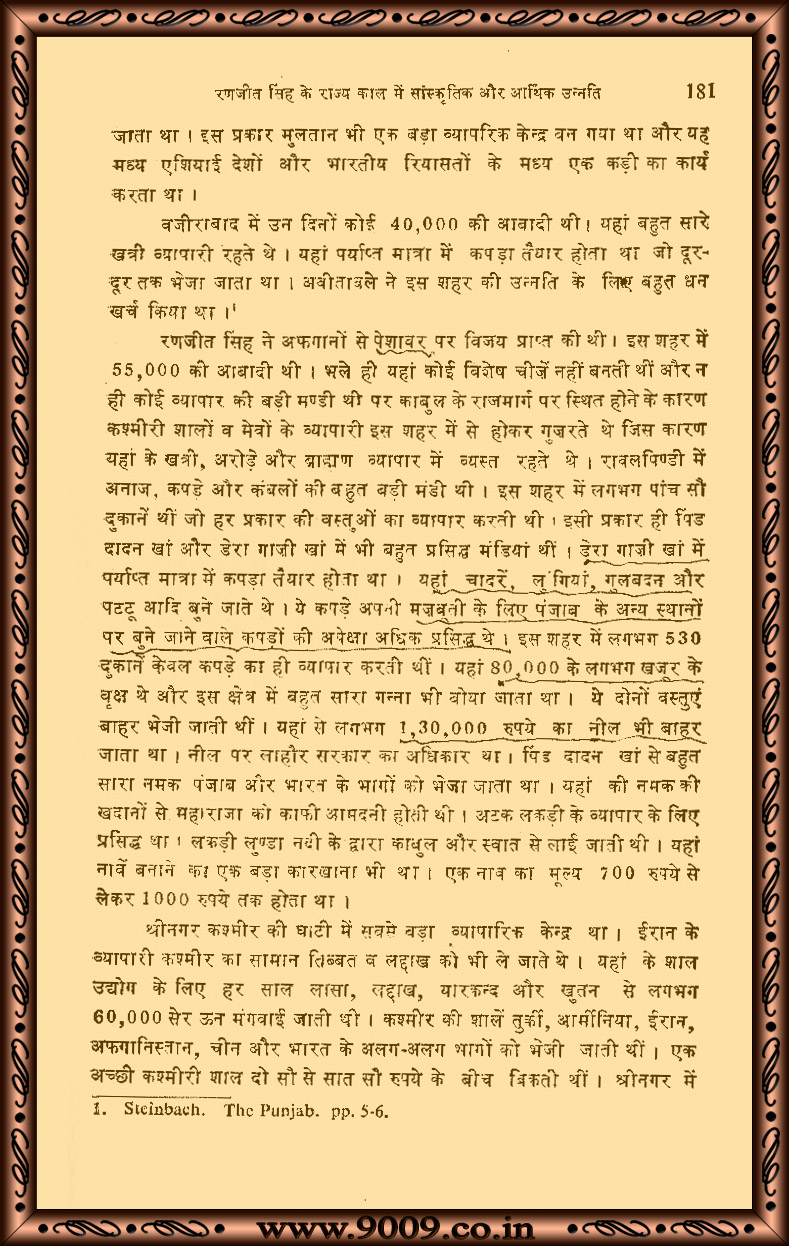 रणजीत सिंह के राज्य काल में सांस्कृतिक और आर्थिक उन्नति 181
जाता था । इस प्रकार मुलतान भी एक बड़ा व्यापरिक केन्द्र बन गया था और यह
मध्य एशियाई देशों और भारतीय रियासतों के मध्य एक कड़ी का कार्य
करता था ।
वजीराबाद में उन दिनों कोई 40,000 की आबादी थी । यहां बहुत सारे
खत्री व्यापारी रहते थे । यहां पर्याप्त मात्रा में कपड़ा तैयार होता था जो दूर-
दूर तक भेजा जाता था । अवीताबले ने इस शहर की उन्नति के लिए बहुत धन
खर्च किया था ।¹
रणजीत सिंह ने अफगानों से पेशावर पर विजय प्राप्त की थी । इस शहर में
55,000 की आबादी थी । भले ही यहां कोई विशेष चीज़ें नहीं बनती थीं और न
ही कोई व्यापार की बड़ी मण्डी थी पर काबुल के राजमार्ग पर स्थित होने के कारण
कश्मीरी शालों व मेवों के व्यापारी इस शहर में से होकर गुज़रते थे जिस कारण
यहां के खत्री, अरोड़े और ब्राह्मण व्यापार में व्यस्त रहते थे । रावलपिण्डी में
अनाज, कपड़े और कंबलों की बहुत बड़ी मंडी थी । इस शहर में लगभग पांच सौ
दुकानें थीं जो हर प्रकार की वस्तुओं का व्यापार करती थी । इसी प्रकार ही पिंड
दादन खां और डेरा गाज़ी खां में भी बहुत प्रसिद्ध मंडियां थीं । डेरा गाज़ी खां में
पर्याप्त मात्रा में कपड़ा तैयार होता था । यहां चादरें, लुंगियां, गुलबदन और
पटटू आदि बुने जाते थे । ये कपड़े अपनी मज़बूती के लिए पंजाब के अन्य स्थानों
पर बुने जाने वाले कपड़ों की अपेक्षा अधिक प्रसिद्ध थे । इस शहर में लगभग 530
दुकानें केवल कपड़े का ही व्यापार करती थीं । यहां 80,000 के लगभग खजूर के
वृक्ष थे और इस क्षेत्र में बहुत सारा गन्ना भी बोया जाता था । ये दोनों वस्तुएं
बाहर भेजी जाती थीं । यहां से लगभग 1,30,000 रुपये का नील भी बाहर
जाता था । नील पर लाहौर सरकार का अधिकार था । पिंड दादन खां से बहुत
सारा नमक पंजाब और भारत के भागों को भेजा जाता था । यहां की नमक की
खदानों से महाराजा को काफी आमदनी होती थी । अटक लकड़ी के व्यापार के लिए
प्रसिद्ध था । लकड़ी लुण्डा नदी के द्वारा काबुल और स्वात से लाई जाती थी । यहां
नावें बनाने का एक बड़ा कारखाना भी था । एक नाव का मूल्य 700 रुपये से
लेकर 1000 रुपये तक होता था ।
श्रीनगर कश्मीर की घाटी में सबसे बड़ा व्यापारिक केन्द्र था । ईरान के
व्यापारी कश्मीर का सामान तिब्बत व लद्दाख को भी ले जाते थे । यहां के शाल
उद्योग के लिए हर साल लासा, लद्दाख, यारकन्द और खुतन से लगभग
60,000 सेर ऊन मंगवाई जाती थी । कश्मीर की शालें तुर्की, आर्मीनिया, ईरान,
अफगानिस्तान, चीन और भारत के अलग-अलग भागों को भेजी जाती थीं । एक
अच्छी कश्मीरी शाल दो सौ से सात सौ रुपये के बीच बिकती थीं । श्रीनगर में
1. Steinbach. The Punjab. pp. 5-6.
www.9009.co.in